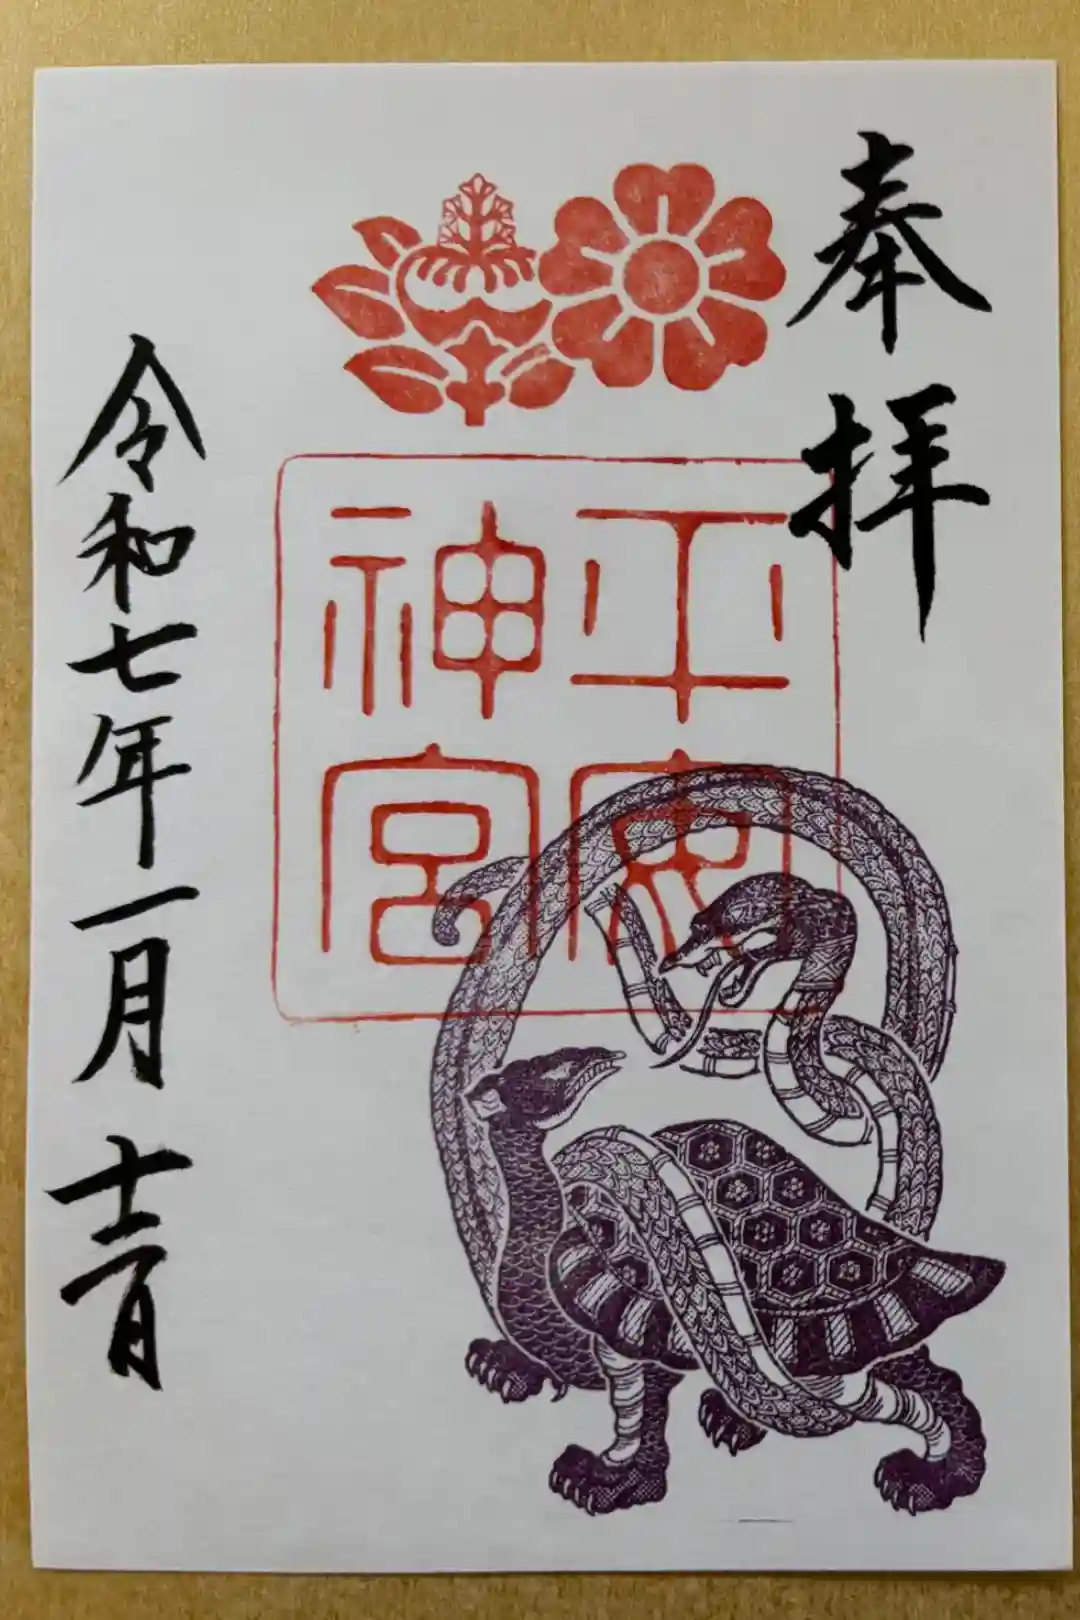 奉拝
平安神宮
令和七年一月十二日